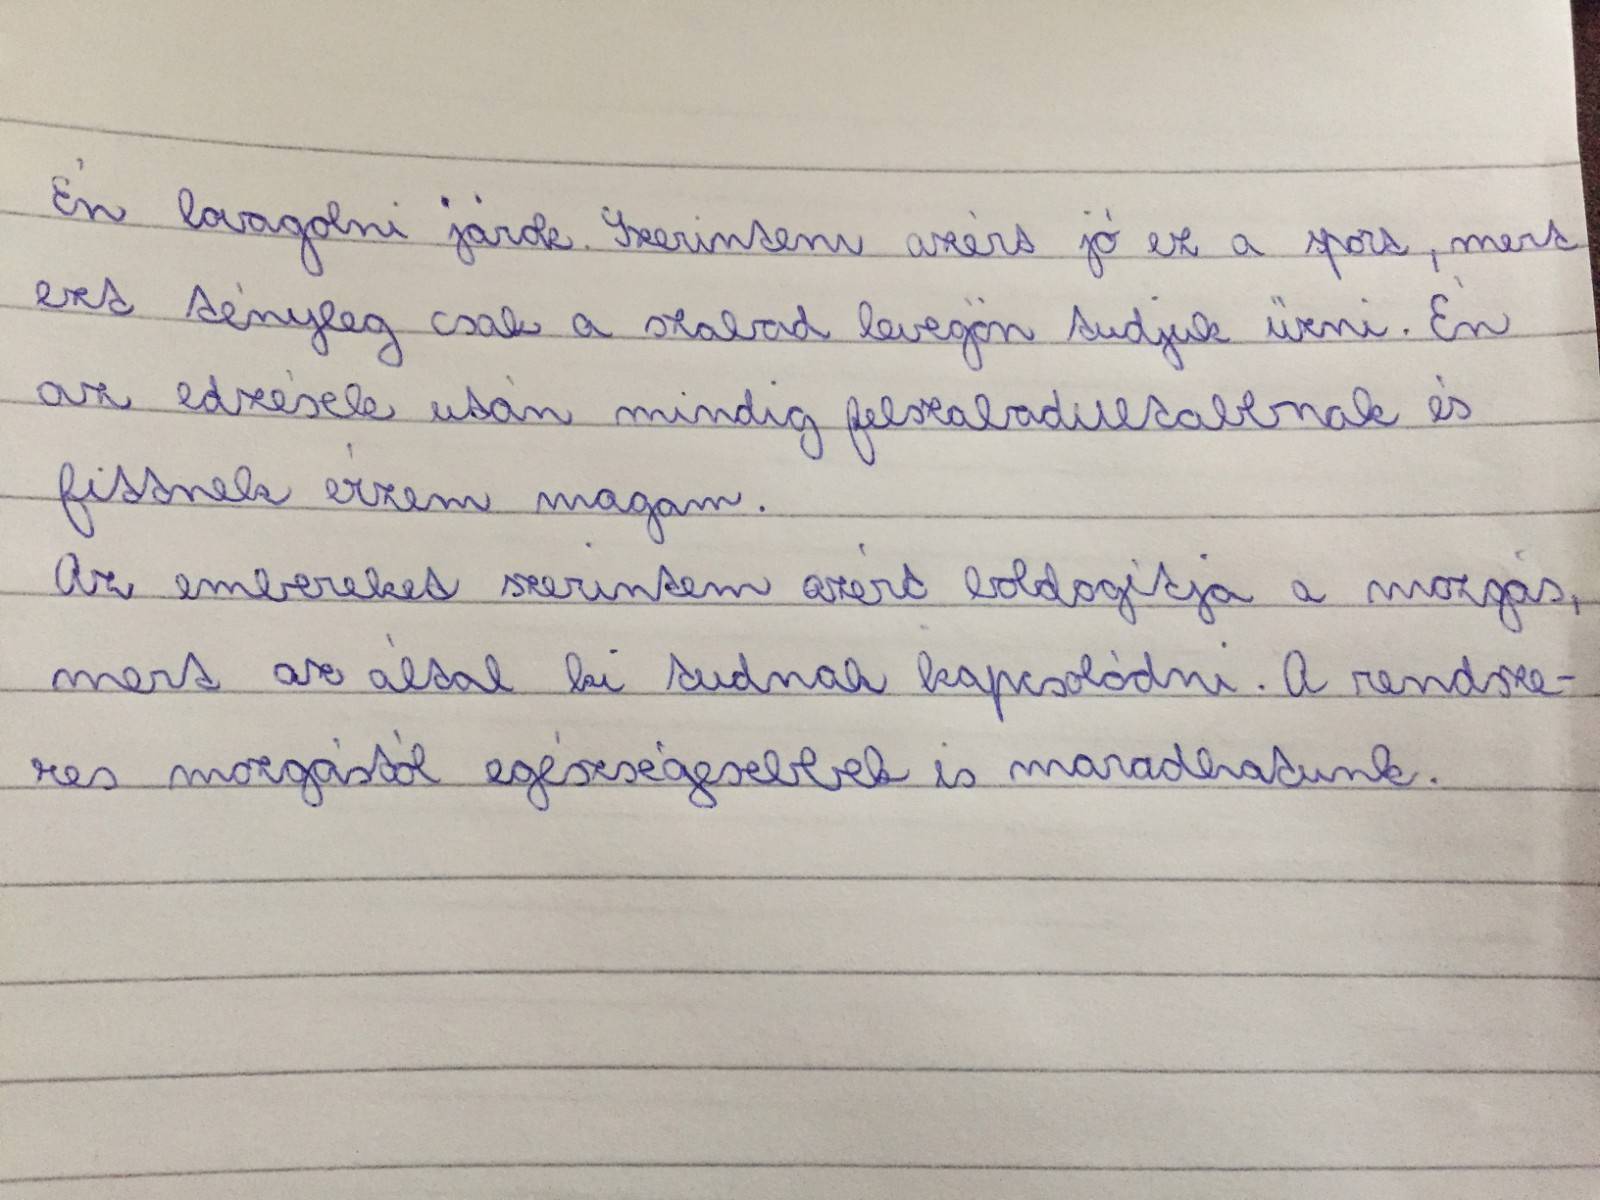 Én lovagolni járok. Szerintem azért jó ez a sport, mert
ezt tényleg csak a szabad levegőn tudjuk űzni. Én
az edzések után mindig felszabadultabbnak és
fittnek érzem magam.
Az embereket szerintem azért boldogítja a mozgás,
mert az által ki tudnak kapcsolódni. A rendsze-
res mozgástól egészségesebbek is maradhatunk.